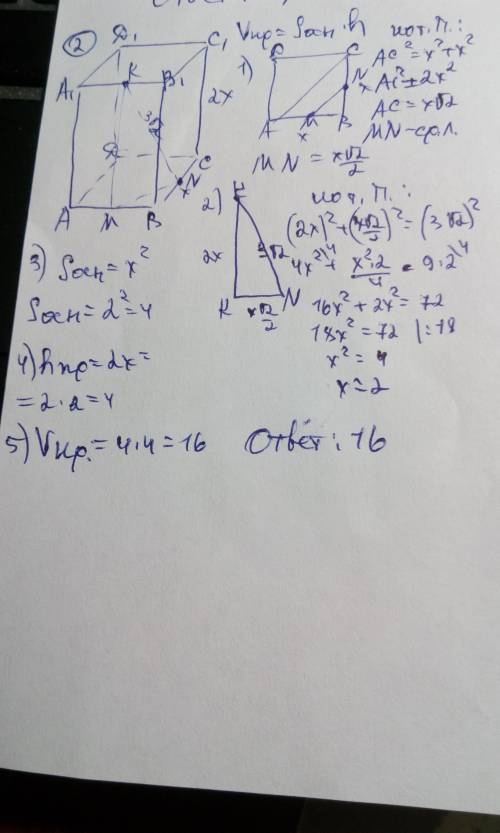 2
Vпр = Sосн · h
по т. П.:
D₁ C₁
A₁ K B₁ 2x
3√2
D C
N
x
A M B
1)
D C
N
x
A M B
x
AC² = x² + x²
AC² = 2x²
AC = x√2
MN - ср. л.
MN = x√2/2
2)
K
2x 3√2
K x√2/2 N
по т. П.:
(2x)² + (x√2/2)² = (3√2)²
4x² \4 + x²·2/4 = 9·2 \4
16x² + 2x² = 72
18x² = 72 |:18
x² = 4
x = 2
3) Sосн = x²
Sосн = 2² = 4
4) hпр = 2x =
= 2 · 2 = 4
5) Vпр. = 4·4 = 16 Ответ: 16